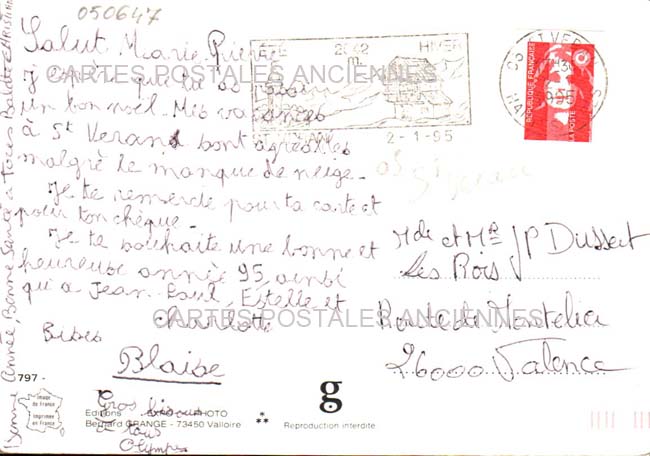 050647
Salut Marie Pierre
J'espère que tu as passé
un bon noel. Mes vacances
à St Verand sont agréables
malgré le manque de neige.
Je te remercie pour ta carte et
pour ton chèque.
Je te souhaite une bonne et
heureuse année 95, ainsi
qu'à Jean Paul, Estelle et
Charlotte
Bises
Blaise
Gros bisous
à tous
Olympe
Bonne Année, Bonne Santé à Tous
ÉTÉ 2042 HIVER
m.
2-1-95
05 ST VERAN
1995
HAUTES
REPUBLIQUE FRANÇAISE
LA POSTE
05 St Veran
Mde et Mr JP Dussert
Les Rois
Route de Montelier
26000 Valence
CARTES POSTALES ANCIENNES
CARTES POSTALES ANCIENNES
797 -
Image
de France
Imprimée
en France
Editions PHOTO
Bernard GRANGE - 73450 Valloire
g
Reproduction interdite